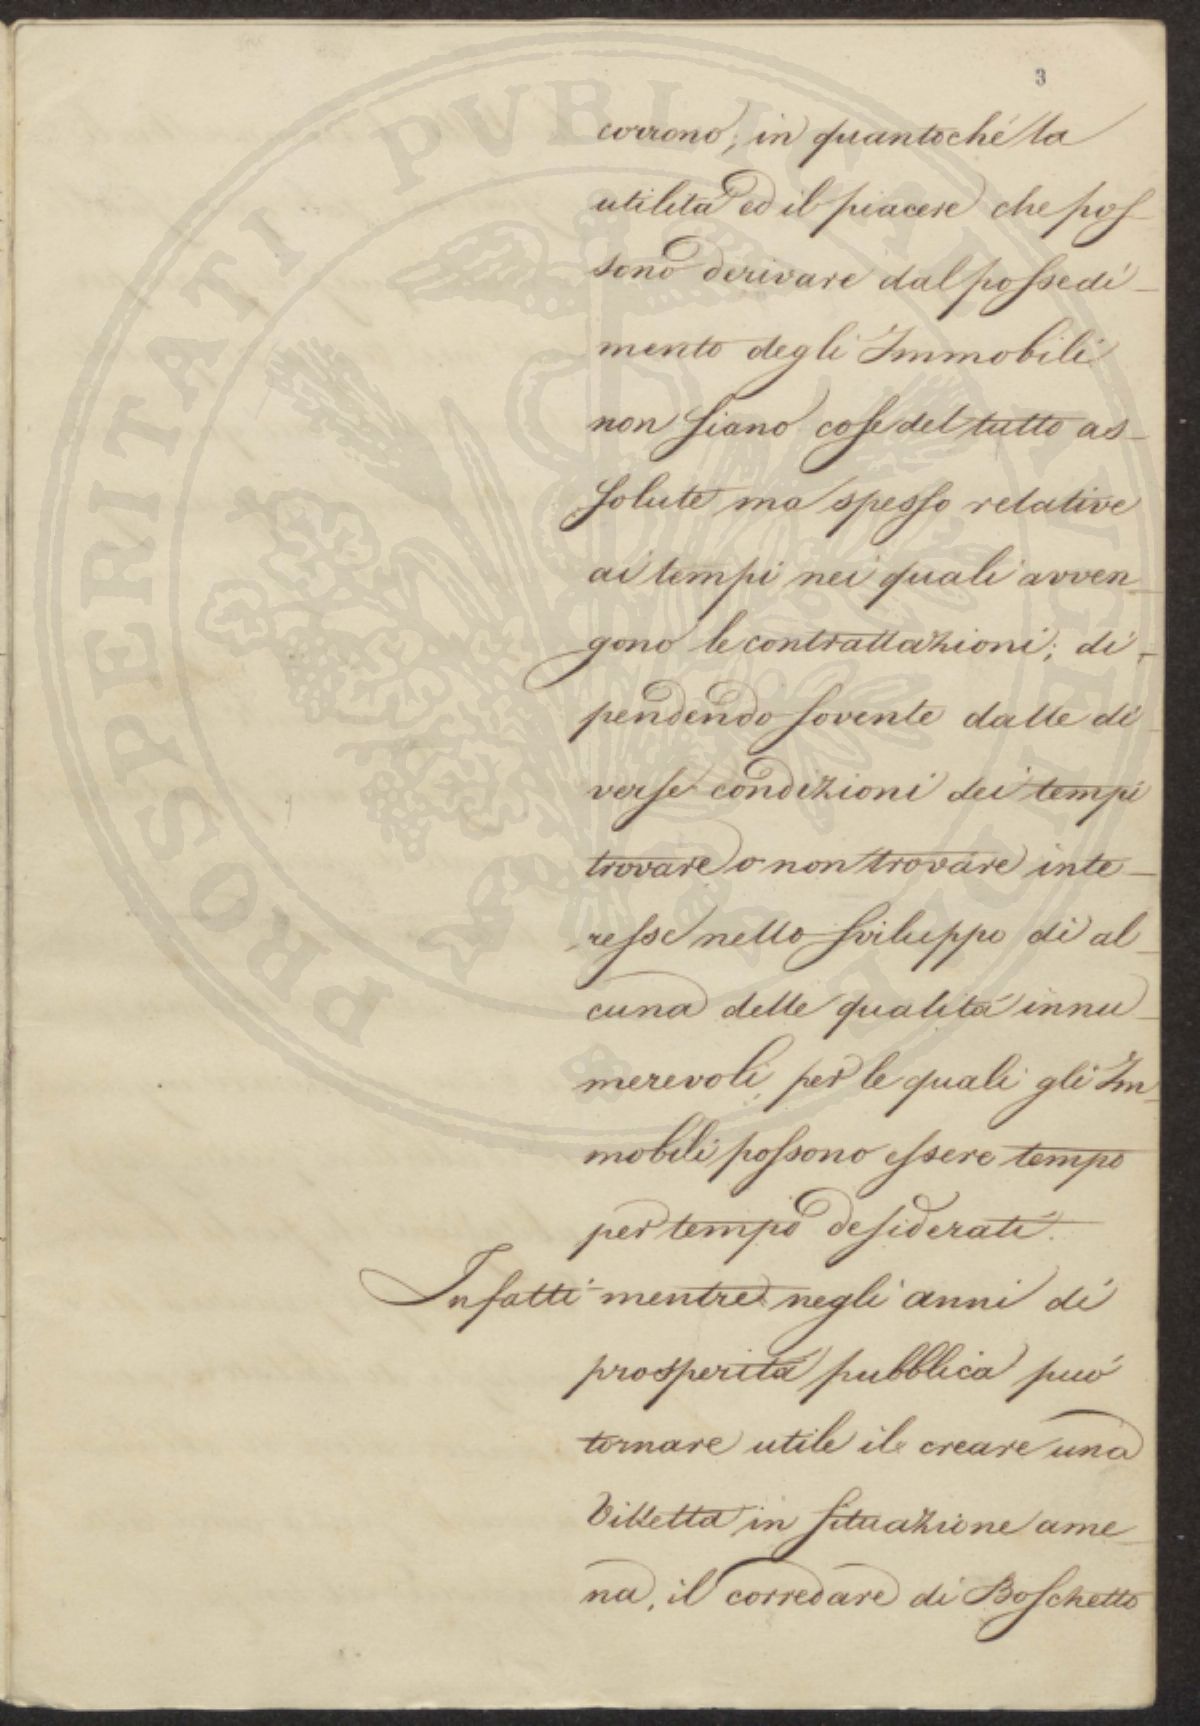 3
corrono; in quantoché la
utilità ed il piacere che pos-
sono derivare dal possedi-
mento degli Immobili
non siano cose del tutto as-
solute ma spesso relative
ai tempi nei quali avven-
gono le contrattazioni; di-
pendendo sovente dalle di-
verse condizioni dei tempi
trovare o non trovare inte-
resse nello sviluppo di al-
cuna delle qualità innu-
merevoli, per le quali gli Im-
mobili possono essere tempo
per tempo desiderati.
Infatti mentre negli anni di
prosperità pubblica può
tornare utile il creare una
Villetta in situazione ame-
na, il corredare di Boschetto
PROSPERITATI PUBLICAE